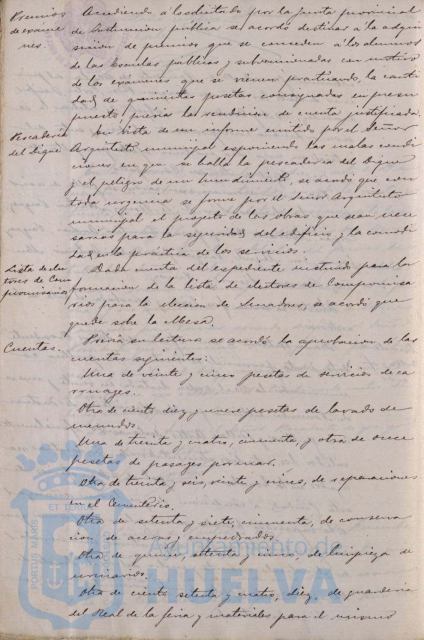 Premios de exámenes
Accediendo á lo solicitado por la Junta provincial
de Instruccion pública se acordó destinar á la adqui
sicion de premios que se conceden á los alumnos
de las Escuelas públicas y subvencionadas con motivo
de los exámenes que se vienen practicando, la canti
dad de quinientas pesetas consignadas en presu
puesto, prévia la rendicion de cuenta justificada.
Pescaderia del Dique
En vista de un informe emitido por el Señor
Arquitecto municipal esponiendo las malas condi
ciones en que se halla la pescaderia del Dique
y el peligro de un hundimiento, se acordó que con
toda urgencia se forme por el Señor Arquitecto
municipal el proyecto de las obras que sean nece
sarias para la seguridad del edificio y la comodi
dad en la práctica de los servicios.
Lista de elec
tores de Com
promisarios
Dada cuenta del espediente instruido para la
formacion de la lista de electores de Compromisa
rios para la eleccion de Senadores, se acordó que
quede sobre la Mesa.
Cuentas.
Prévia su lectura se acordó la aprobacion de las
cuentas siguientes:
Una de veinte y cinco pesetas de servicios de ca
rruages.
Otra de ciento diez y nueve pesetas de lavado de
menudos.
Una de treinta y cuatro, cincuenta y otra de once
pesetas de pasages por mar.
Otra de treinta y seis, veinte y cinco, de reparaciones
en el Cementerio.
Otra de setenta y siete, cincuenta, de conserva
cion de aceras y empedrados.
Otra de quince, setenta y cinco, de limpieza de
urinarios.
Otra de ciento setenta y cuatro, diez, de guarderia
del Real de la feria y materiales para el mismo
PORTUS MARIS ET
Ayuntamiento de
HUELVA